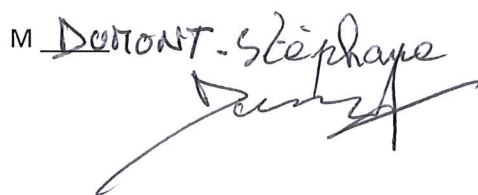 M DUMONT-Stéphane